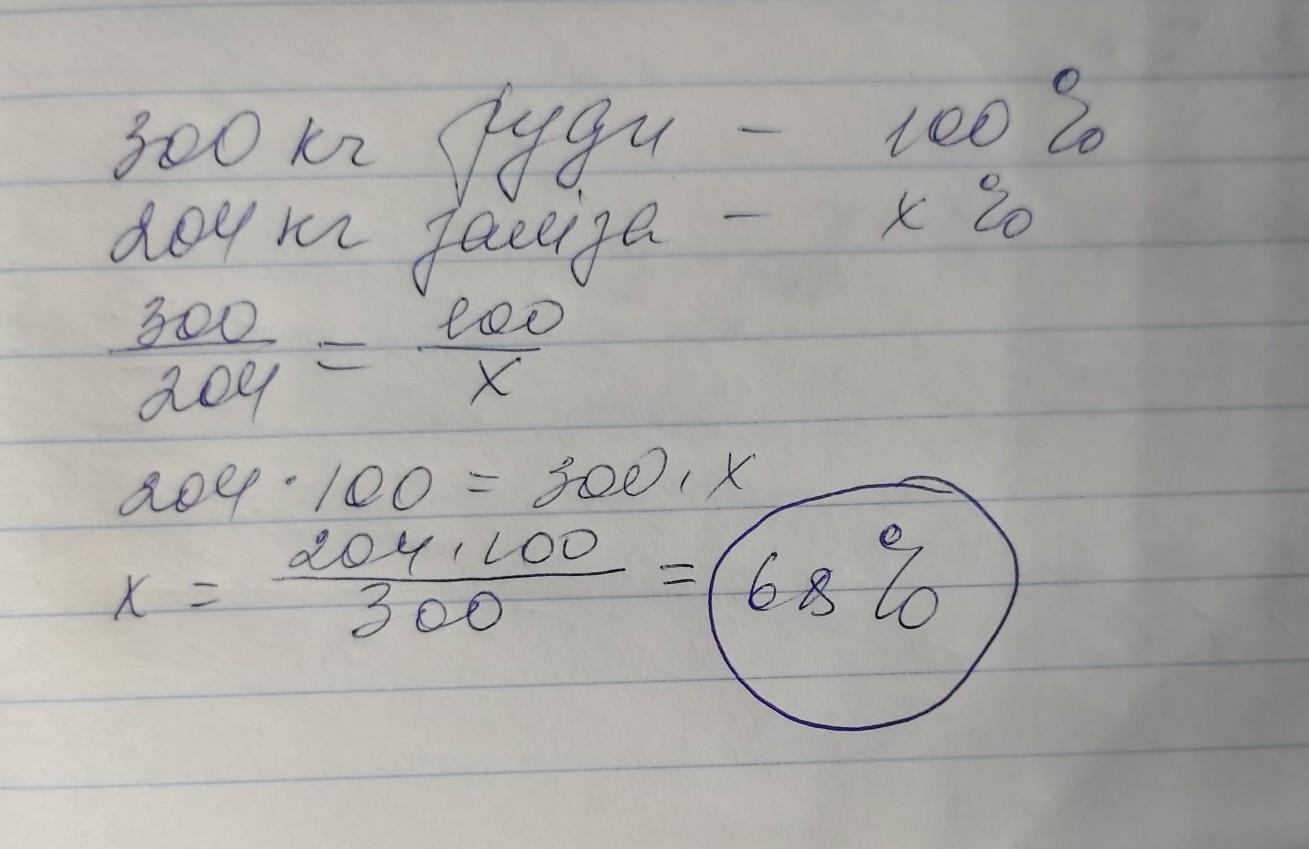 300 кг руди – 100 %
204 кг заліза – x %
300/204 = 100/x
204 · 100 = 300 · x
x = 204 · 100/300 = 68 %